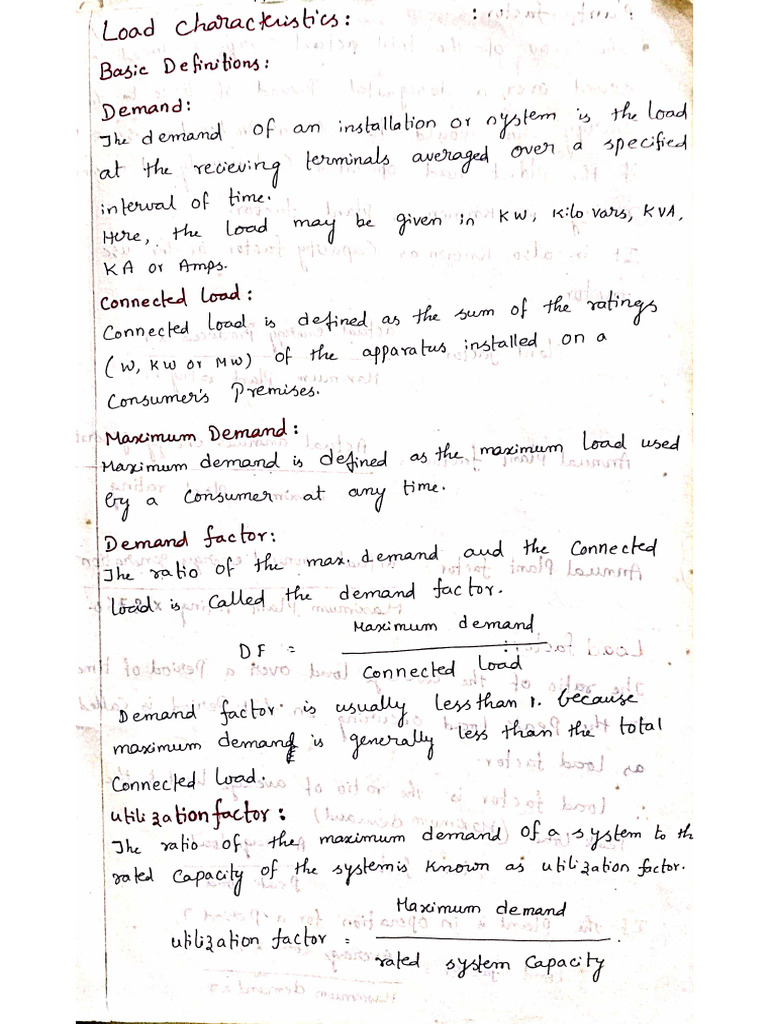 Load characteristics:
Basic Definitions:
Demand:
The demand of an installation or system is the load
at the recieving terminals averaged over a specified
interval of time.
Here, the load may be given in KW, Kilo vars, KVA,
KA or Amps.
Connected load:
Connected load is defined as the sum of the ratings
(W, KW or MW) of the apparatus installed on a
Consumer's Premises.
Maximum Demand:
Maximum demand is defined as the maximum load used
by a consumer at any time.
Demand factor:
The ratio of the max. demand and the Connected
load is called the demand factor.
DF = Maximum demand
Connected load
Demand factor is usually less than 1. because
maximum demand is generally less than the total
Connected load.
Utilization factor:
The ratio of the maximum demand of a system to th
rated Capacity of the system is known as utilization factor.
utilization factor = Maximum demand
rated system Capacity